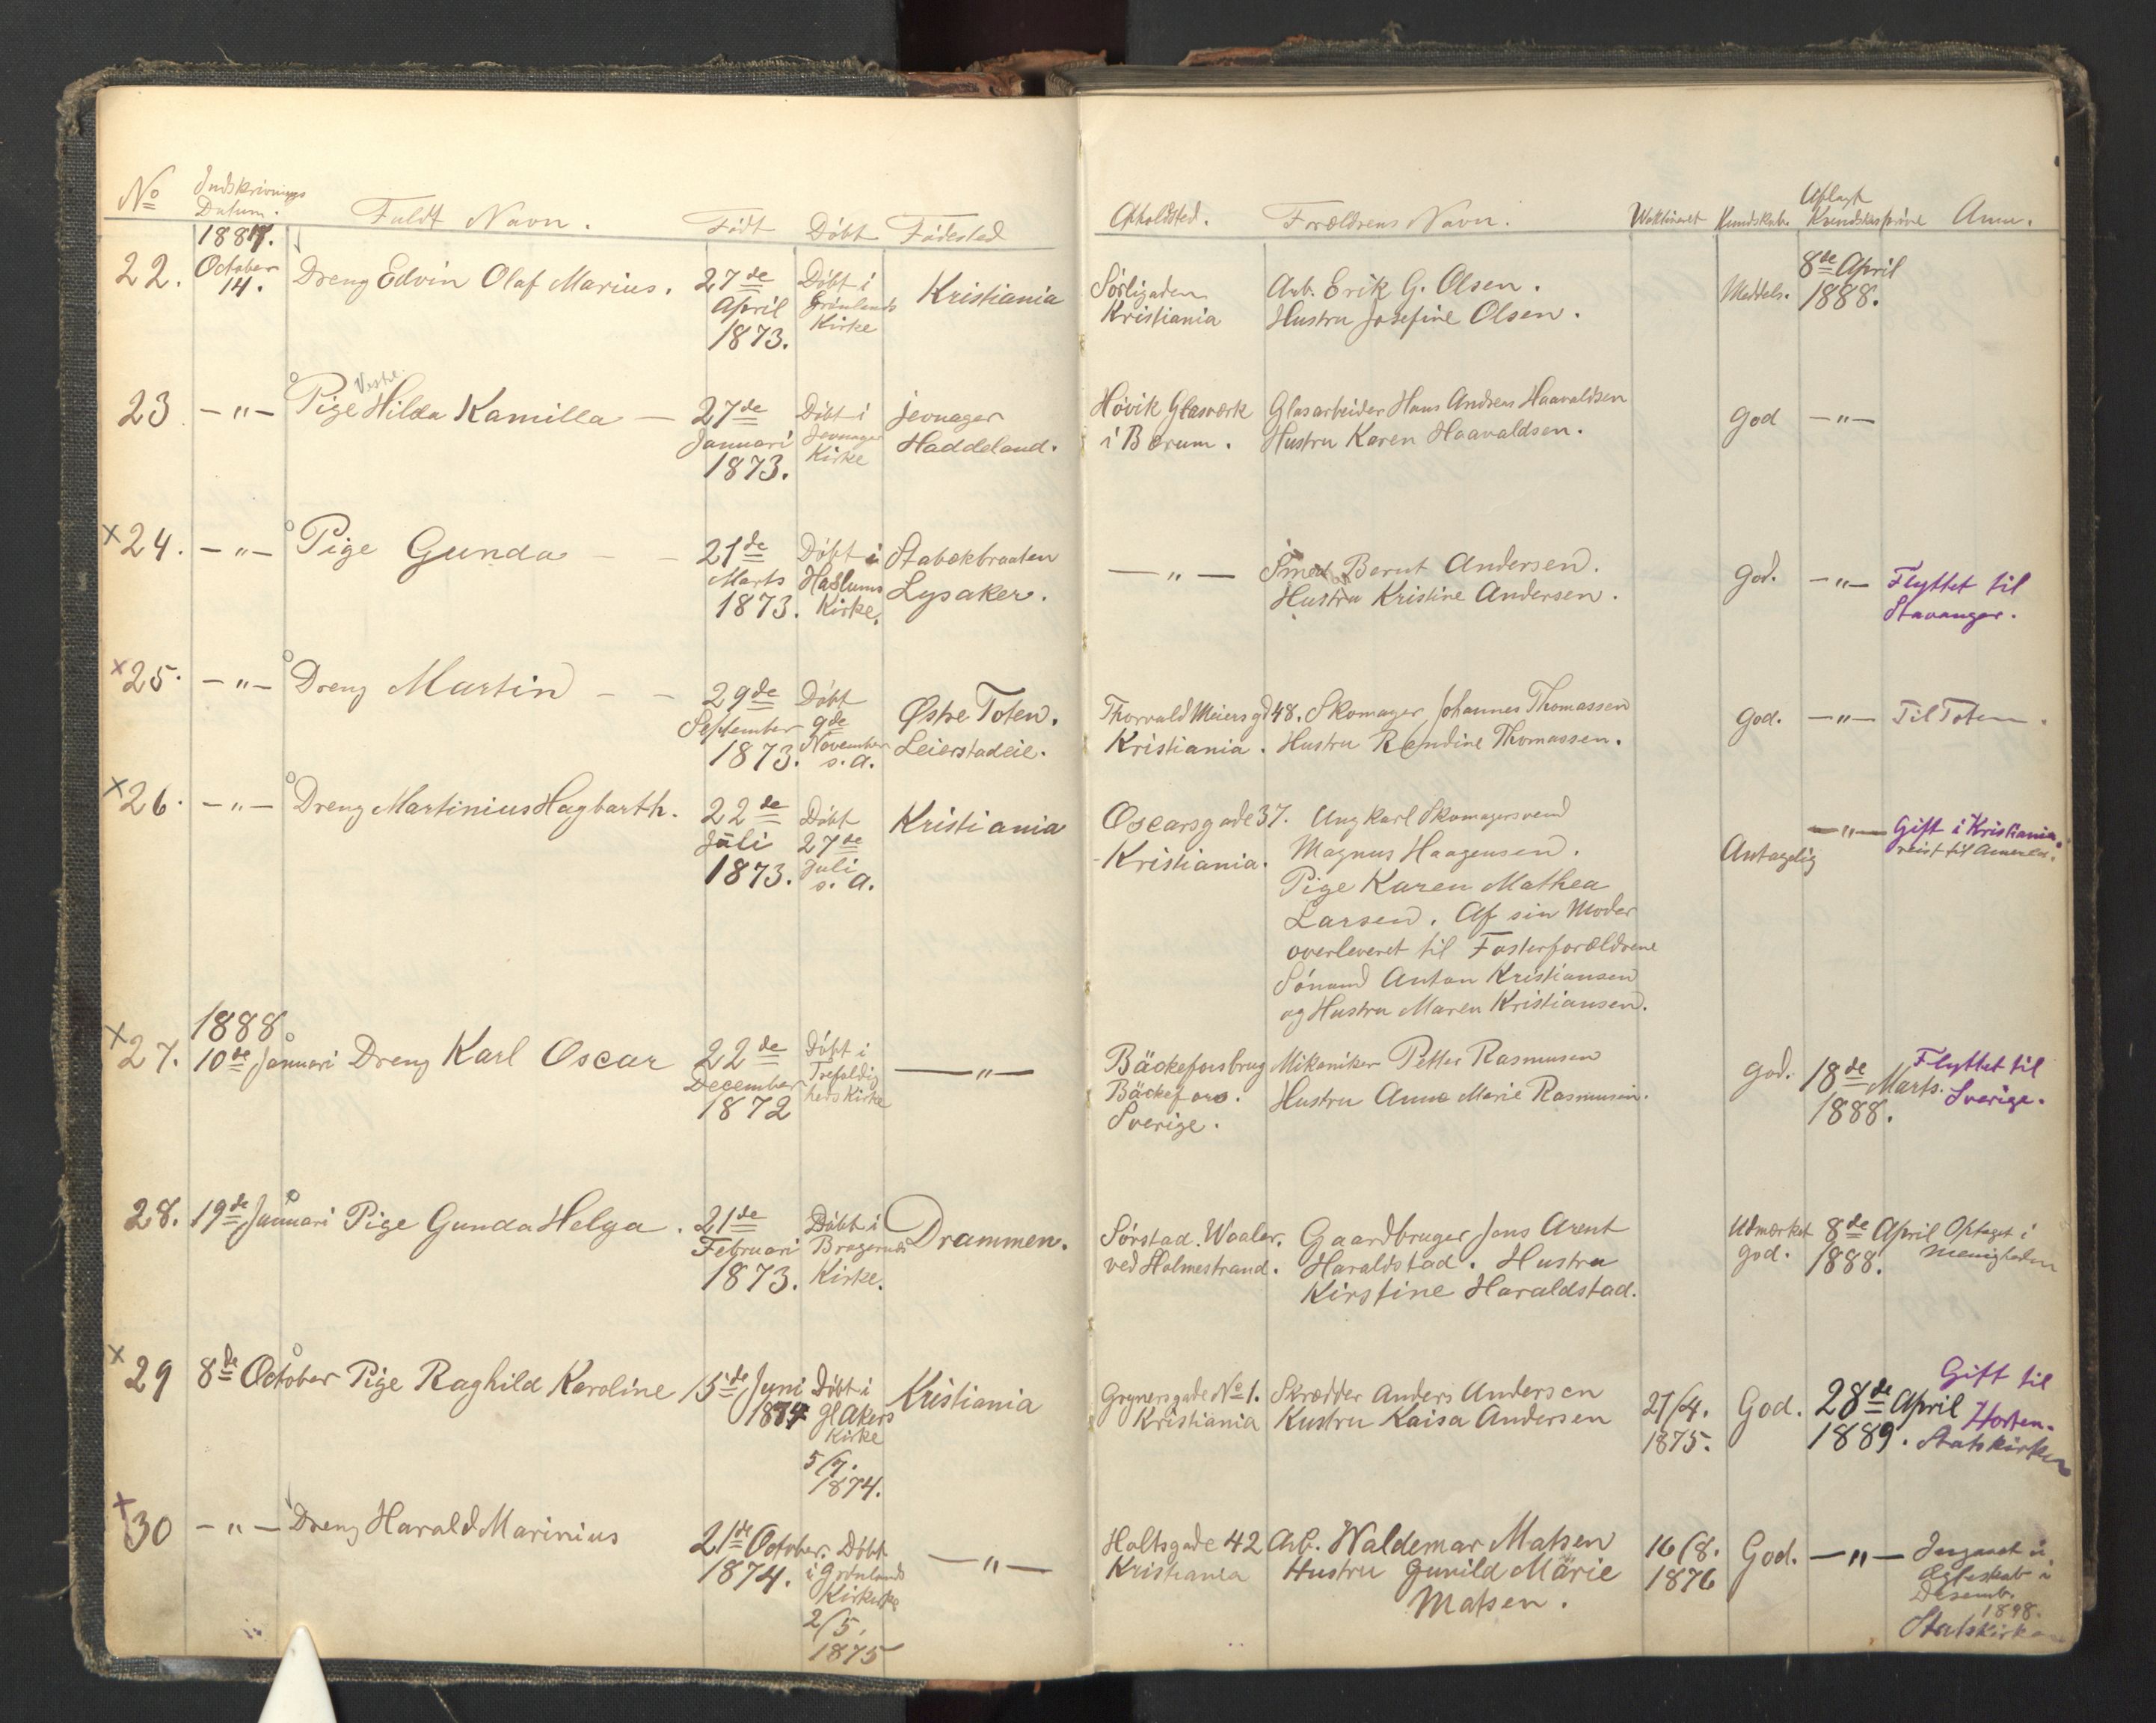 No Indskrivnings Datum. Fuldt Navn. Födt Döbt Födested Opholdsted. Forældrens Navn. Waktineret Kundskab. Aflagt Kundskabspröve Anm.
1887.
22. October 14. Dreng Edvin Olaf Marius. 27de April 1873. Döbt i Grönlands Kirke Kristiania Sörligaden Kristiania Arb. Erik G. Olsen. Hustru Josefine Olsen. Meddels. 8de April 1888.
23 — " — Pige Hilda Kamilla — 27de Januari 1873. Döbt i Jevnager Kirke Jevnager Haddeland. Hövik Glasværk i Bærum. Glasarbeider Hans Andreas Haavaldsen Hustru Karen Haavaldsen. god — " —
x 24. — " — Pige Gunda — — 21de Marts 1873. Döbt i Haslums Kirke. Stabækbraaten Lysaker. — " — Smed Bernt Andersen. Hustru Kristine Andersen. god. — " — Flyttet til Stavanger.
x 25. — " — Dreng Martin — — 29de September 1873. Döbt 9de November s. a. Østre Toten. Leierstadeie. Thorvald Meiersgd 48. Kristiania. Skomager Johannes Thomassen Hustru Randine Thomassen. god. — " — Til Toten.
x 26. — " — Dreng Martinius Hagbarth. 22de Juli 1873. Döbt 27de Juli s. a. Kristiania Oscarsgade 37. Kristiania. Ungkarl Skomagersvend
Magnus Haagensen.
Pige Karen Mathea
Larsen. Af sin Moder
overleveret til Fosterforældrene
Sömand Anton Kristiansen
og Hustru Maren Kristiansen. Antagelig — " — Gift i Kristiania. reist til Amerika.
1888
x 27. 10de Januari Dreng Karl Oscar 22de December 1872 Döbt i Trefoldighedskirke — " — Bäckeforsbrug Bäckefors. Sverige. Mikaniker Petter Rasmusen Hustru Anne Marie Rasmusen. god. 18de Marts. 1888. Flyttet til Sverige.
28. 19de Januari Pige Gunda Helga. 21de Februari 1873. Döbt i Bragernes Kirke. Drammen. Sörstad. Waaler. ved Holmestrand. Gaardbruger Jens Arent
Haraldstad. Hustru
Kirstine Haraldstad. Udmærket god. 8de April 1888. Optaget i Menigheden
x 29 8de October Pige Raghild Karoline 15de Juni 1874 Döbt i Gl Akers Kirke 5/7. 1874. Kristiania Grynersgade No 1. Kristiania Skrædder Anders Andersen Hustru Kaisa Andersen 27/4. 1875. God. 28de April 1889. Gift til Horten. Statskirken
x 30 — " — Dreng Harald Marinius 21de October. 1874. Döbt i Grönlands Kirke 2/5. 1875 — " — Holtsgade 42 Kristiania Arb. Waldemar Matsen
Hustru Gunild Marie
Matsen. 16/8. 1876 God. — " — Indgaaet i Ægteskab i Desemb. 1898. Statskirken